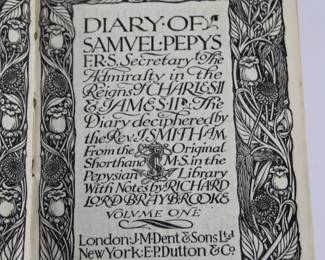 DIARY·OF·
SAMVEL·PEPYS
F.R.S. Secretary To The
Admiralty in the
Reigns of CHARLES II
& JAMES·II·: The
Diary deciphered by
the Rev. J. SMITH A.M.
From the Original
Shorthand M·S in the
Pepysian Library
With Notes by RICHARD
LORD BRAYBROOKE
VOLVME ONE
London: J·M·Dent & Sons Ltd
New York: E·P·Dutton & Co